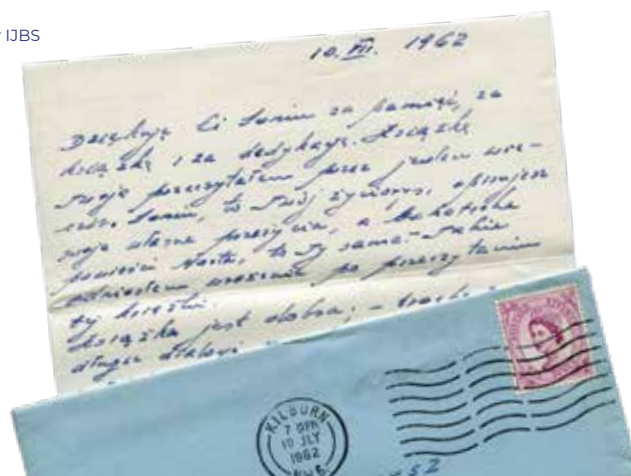 IJBS
10.VII. 1962
Dziękuję Ci Soniu za pamięć, za
książkę i za dedykację. Książkę
Twoją przeczytałem przez jeden wie-
czór. Soniu, to Twój życiorys, opisujesz
swoje własne przeżycia, a bohaterka
powieści to Ty sama. – Takie
odniosłem wrażenie po przeczytaniu
tej książki.
Książka jest dobra; – trochę
długie
KILBURN
7 PM
10 JLY
1962
N.W.6.
52